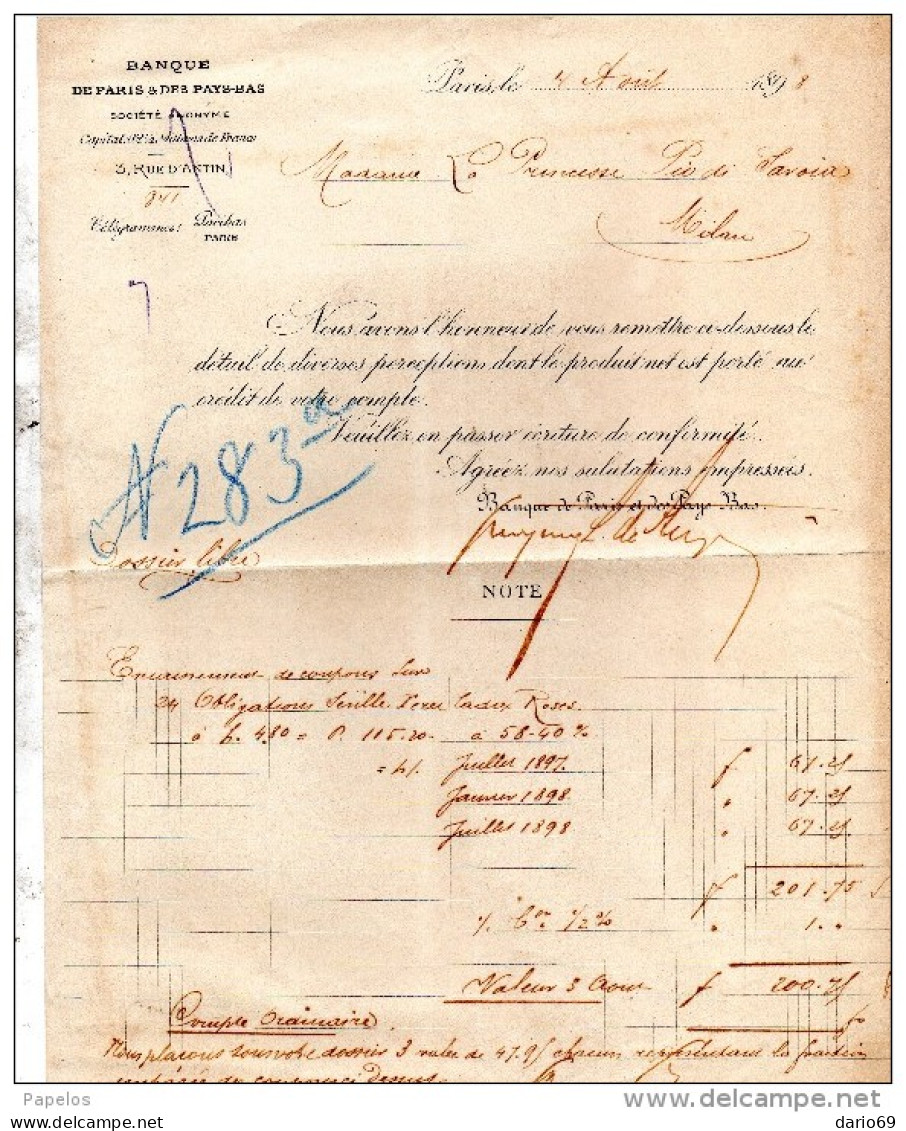 BANQUE
DE PARIS & DES PAYS-BAS
SOCIÉTÉ ANONYME
Capital: 62½ Millions de Francs
3, RUE D'ANTIN
841
Télégrammes: Paribas
PARIS
Paris, le 4 Août 1898
Madame La Princesse Pio di Savoia
Milan
Nous avons l'honneur de vous remettre ci-dessous le
détail de diverses perceptions dont le produit net est porté au
crédit de votre compte.
Veuillez en passer écriture de conformité.
Agréez nos salutations empressées.
Banque de Paris et des Pays Bas.
N 283 a
Dossier libre
NOTE
Encaissement de coupons sur
24 Obligations Séville Xeres Cadix Roses.
à p. 4.80 = P. 115.20 à 58.40 %
Juillet 1897. f 67.25
Janvier 1898 " 67.25
Juillet 1898 " 67.25
f 201.75
½ % " 1. "
Valeur 3 Aout f 200.75
Compte Ordinaire.
Nous plaçons sous votre dossier 3 valeurs de 47.95 chacun représentant la fraction
Papelos
delcampe.net
dario69